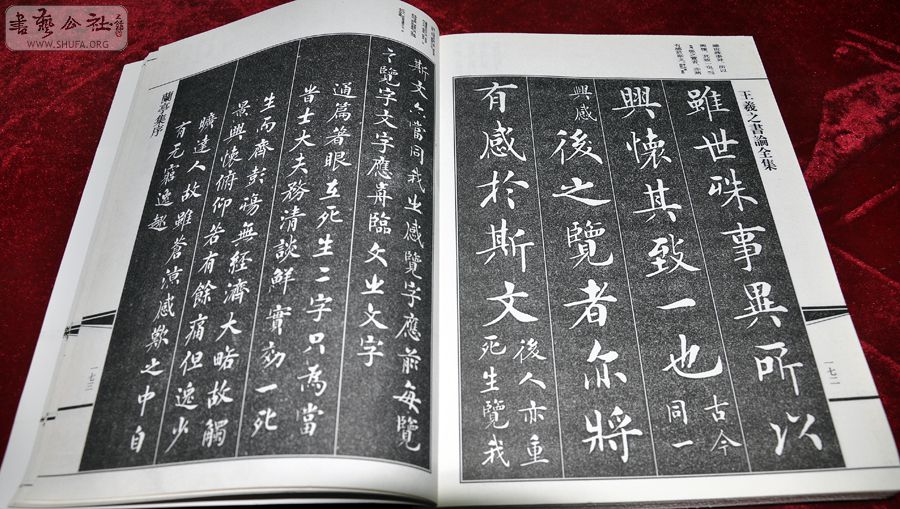 書藝公社
WWW.SHUFA.ORG
王羲之書論全集
雖世殊事異所以
興懷其致一也 古今
同一
興感 後之覽者亦將
有感於斯文 後人亦重
死生覽我
一七二
斯文亦當同我之感覽字應前每覽
之覽字文字應前臨文之文字
通篇著眼在死生二字只為當
時士大夫務清談鮮實効一死
生而齊彭殤無經濟大略故觸
景興懷俯仰若有餘痛但逸少
曠達人故雖蒼涼感歎之中自
有無窮逸趣
蘭亭集序
一七三